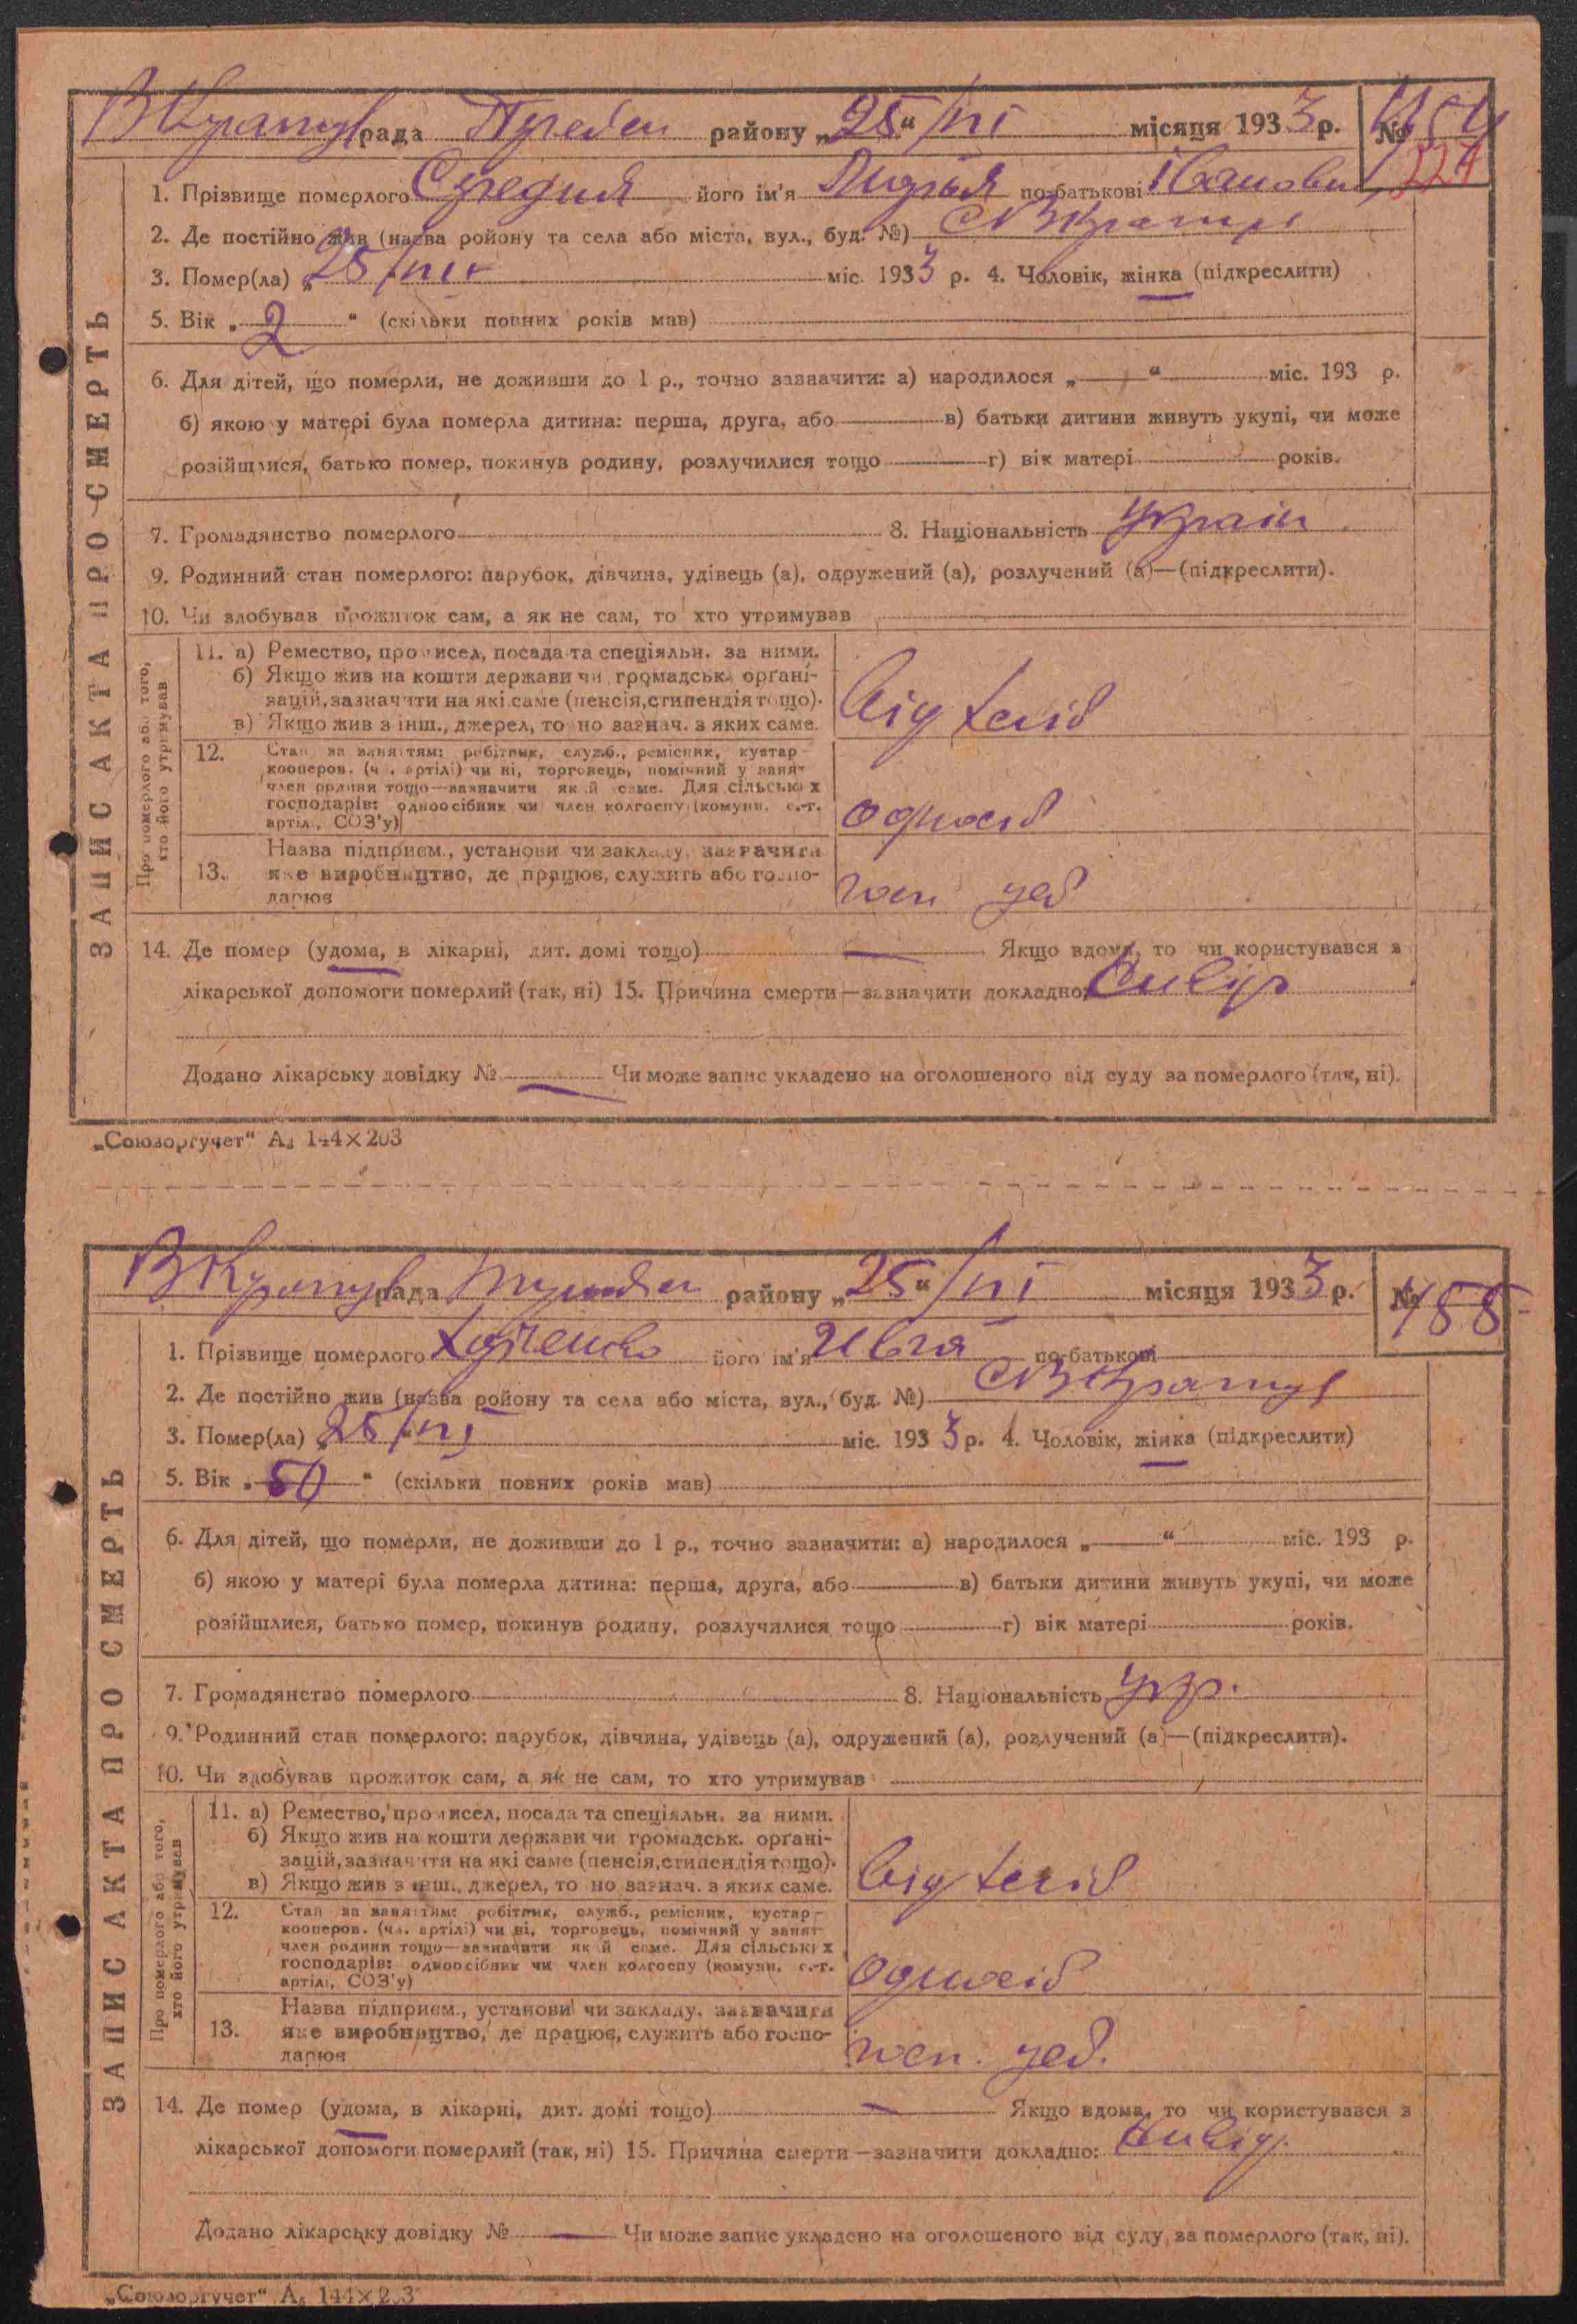 рада району „25“/VI місяця 1933 р. №
224
1. Прізвище померлого Середня його ім'я по-батькові Івановн
2. Де постійно жив (назва ройону та села або міста, вул., буд. №)
3. Помер(ла) „25/VI міс. 1933 р. 4. Чоловік, жінка (підкреслити)
5. Вік „2“ (скільки повних років мав)
6. Для дітей, що померли, не доживши до 1 р., точно зазначити: а) народилося „ “ міс. 193 р.
б) якою у матері була померла дитина: перша, друга, або в) батьки дитини живуть укупі, чи може
розійшлися, батько помер, покинув родину, розлучилися тощо г) вік матері років.
7. Громадянство померлого 8. Національність Україн
9. Родинний стан померлого: парубок, дівчина, удівець (а), одружений (а), розлучений (а)—(підкреслити).
10. Чи здобував прожиток сам, а як не сам, то хто утримував
ЗАПИС АКТА ПРО СМЕРТЬ
Про померлого або того, хто його утримував
11. а) Ремество, промисел, посада та спеціяльн. за ними.
б) Якщо жив на кошти держави чи громадськ. орґані-
зацій, зазначити на які саме (пенсія, стипендія тощо).
в) Якщо жив з інш., джерел, то но зазнач. з яких саме.
12. Стан за заняттям: робітник, служб., ремісник, кустар
кооперов. (чл. артілі) чи ні, торговець, помічний у занят
член родини тощо—зазначити який саме. Для сільських
господарів: одноосібник чи член колгоспу (комуни, с.-г.
артілі, СОЗ'у)
одноосіб
13. Назва підприєм., установи чи закладу, зазначити
яке виробництво, де працює, служить або госпо-
дарює
14. Де помер (удома, в лікарні, дит. домі тощо) — Якщо вдома, то чи користувався з
лікарської допомоги померлий (так, ні) 15. Причина смерти—зазначити докладно:
Додано лікарську довідку № — Чи може запис укладено на оголошеного від суду за померлого (так, ні).
„Союзоргучет“ А₅ 144×203
рада району „25“/VI місяця 1933 р. № 488
1. Прізвище померлого його ім'я Ивга по-батькові
2. Де постійно жив (назва ройону та села або міста, вул., буд. №)
3. Помер(ла) „25/VI міс. 1933 р. 4. Чоловік, жінка (підкреслити)
5. Вік „50“ (скільки повних років мав)
6. Для дітей, що померли, не доживши до 1 р., точно зазначити: а) народилося „ “ міс. 193 р.
б) якою у матері була померла дитина: перша, друга, або в) батьки дитини живуть укупі, чи може
розійшлися, батько помер, покинув родину, розлучилися тощо г) вік матері років.
7. Громадянство померлого 8. Національність укр.
9. Родинний стан померлого: парубок, дівчина, удівець (а), одружений (а), розлучений (а)—(підкреслити).
10. Чи здобував прожиток сам, а як не сам, то хто утримував
ЗАПИС АКТА ПРО СМЕРТЬ
Про померлого або того, хто його утримував
11. а) Ремество, промисел, посада та спеціяльн. за ними.
б) Якщо жив на кошти держави чи громадськ. орґані-
зацій, зазначити на які саме (пенсія, стипендія тощо).
в) Якщо жив з інш., джерел, то но зазнач. з яких саме.
12. Стан за заняттям: робітник, служб., ремісник, кустар—
кооперов. (чл. артілі) чи ні, торговець, помічний у занят
член родини тощо—зазначити який саме. Для сільських
господарів: одноосібник чи член колгоспу (комуни, с.-г.
артілі, СОЗ'у)
одноосіб
13. Назва підприєм., установи чи закладу, зазначити
яке виробництво, де працює, служить або госпо-
дарює
14. Де помер (удома, в лікарні, дит. домі тощо) — Якщо вдома, то чи користувався з
лікарської допомоги померлий (так, ні) 15. Причина смерти—зазначити докладно:
Додано лікарську довідку № — Чи може запис укладено на оголошеного від суду за померлого (так, ні).
„Союзоргучет“ А₅ 144×203